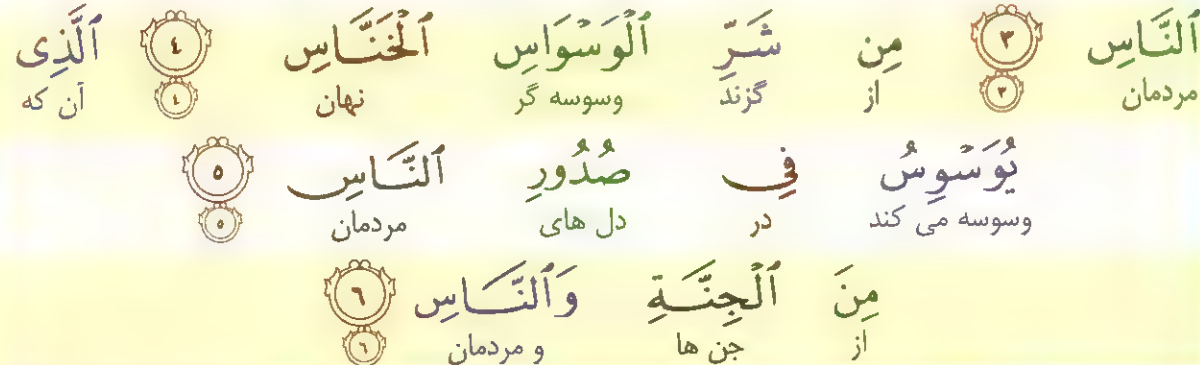 ٱلنَّاسِ ٣ مِن شَرِّ ٱلْوَسْوَاسِ ٱلْخَنَّاسِ ٤ ٱلَّذِى
مردمان ٣ از گزند وسوسه گر نهان ٤ آن که
يُوَسْوِسُ فِى صُدُورِ ٱلنَّاسِ ٥
وسوسه می کند در دل های مردمان ٥
مِنَ ٱلْجِنَّةِ وَٱلنَّاسِ ٦
از جن ها و مردمان ٦